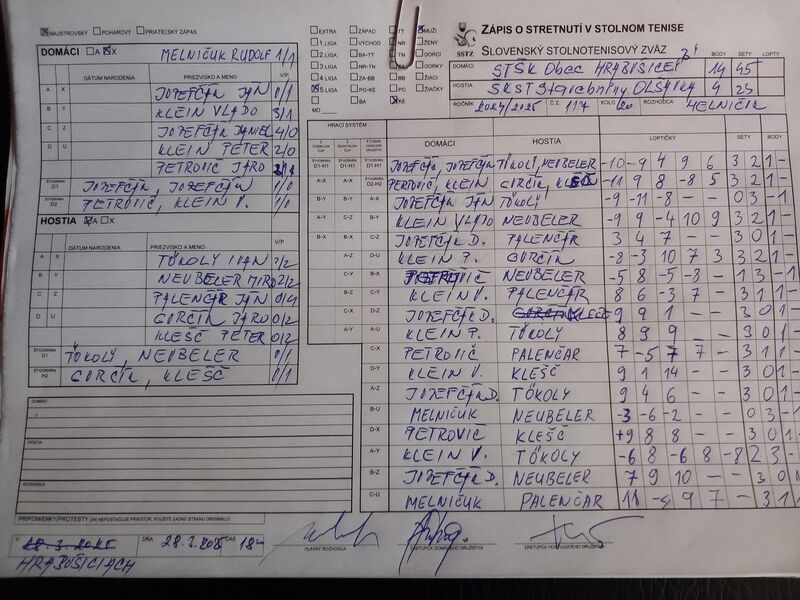 MAJSTROVSKÝ POHÁROVÝ PRIATEĽSKÝ ZÁPAS
DOMÁCI A X MELNIČUK RUDOLF 1/1
DÁTUM NARODENIA PRIEZVISKO A MENO V/P
A X JOZEFČÁK JÁN 0/1
B Y KLEIN VLADO 3/1
C Z JOZEFČÁK DANIEL 4/0
D U KLEIN PETER 2/0
PETROVIČ JARO
ŠTVORHRA D1 JOZEFČÁK, JOZEFČÁK 1/0
ŠTVORHRA D2 PETROVIČ, KLEIN P. 1/0
HOSTIA A X
DÁTUM NARODENIA PRIEZVISKO A MENO V/P
A X TŐKOLY IVAN 2/2
B Y NEUBELER MIRO 2/2
C Z PALENČÁR JÁN 0/4
D U GURČÍK JARO 0/2
KLEŠČ PETER 0/2
ŠTVORHRA D1 TŐKOLY, NEUBELER 0/1
ŠTVORHRA H2 GURČÍK, KLEŠČ 0/1
DOMÁCI
HOSTIA
ROZHODCA
PRIPOMIENKY/PROTESTY (AK NEPOSTAČUJE PRIESTOR, POUŽITE ZADNÚ STRANU ORIGINÁLU)
V 28.3.2025 DŇA 28.3.2025 ČAS 18
HRABUŠICIACH
EXTRA ZÁPAD TT MUŽI
1.LIGA VÝCHOD NR ŽENY
2.LIGA BA-TT TN DORKY
3.LIGA NR-TN DORCI
4.LIGA ZA-BB BB ŽIAČKY
5.LIGA PO-KE PO ŽIACI
BA KE
MO
SSTZ
ZÁPIS O STRETNUTÍ V STOLNOM TENISE
SLOVENSKÝ STOLNOTENISOVÝ ZVÄZ
BODY SETY LOPTY
DOMÁCI STŠK Obec HRABUŠICE "B" 14 45
HOSTIA SKST Harabníny OLŠAVKA 4 23
ROČNÍK 2024/2025 Č.Z. 117 KOLO 20 ROZHODCA MELNIČUK
HRACÍ SYSTÉM
DOMÁCI HOSTIA LOPTIČKY SETY BODY
D1-H1 D1-H1 JOZEFČÁK, JOZEFČÁK TŐKOLY, NEUBELER -10 -9 4 9 6 3 2 1 -
A-X D2-H2 PETROVIČ, KLEIN GURČÍK, KLEŠČ -11 9 8 -8 5 3 2 1 -
B-Y A-X JOZEFČÁK JÁN TŐKOLY -9 -11 -8 - - 0 3 - 1
A-Y C-Z B-Y KLEIN VLADO NEUBELER -9 9 -4 10 9 3 2 1 -
B-X B-X C-Z JOZEFČÁK D. PALENČÁR 3 4 7 - - 3 0 1 -
A-Z D-U KLEIN P. GURČÍK -8 -3 10 7 3 3 2 1 -
C-Y B-X PETROVIČ NEUBELER -5 8 -5 -8 - 1 3 - 1
B-Z C-Y KLEIN V. PALENČÁR 8 6 -3 7 - 3 1 1 -
C-X D-Z JOZEFČÁK D. KLEŠČ 9 9 1 - - 3 0 1 -
A-Y A-U KLEIN P. TŐKOLY 8 9 9 - - 3 0 1 -
C-X PETROVIČ PALENČAR 7 -5 7 7 - 3 1 1 -
D-Y KLEIN V. KLEŠČ 9 1 14 - - 3 0 1 -
A-Z JOZEFČÁK D. TŐKOLY 9 4 6 - - 3 0 1 -
B-U MELNIČUK NEUBELER -3 -6 -2 - - 0 3 - 1
D-X PETROVIČ KLEŠČ +9 8 8 - - 3 0 1 -
A-Y KLEIN V. TŐKOLY -6 8 -6 8 -8 2 3 -
B-Z JOZEFČÁK D. NEUBELER 7 9 10 - - 3 0
C-U MELNIČUK PALENČAR 11 9 7 - 3 1
HLAVNÝ ROZHODCA ZÁSTUPCA DOMÁCEHO DRUŽSTVA ZÁSTUPCA HOSŤUJÚCEHO DRUŽSTVA